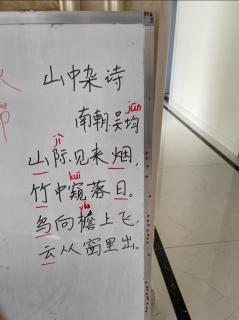 山中杂诗
南朝吴均
jūn
山际见来烟，
jì
竹中窥落日。
kuī
鸟向檐上飞，
yán
云从窗里出。